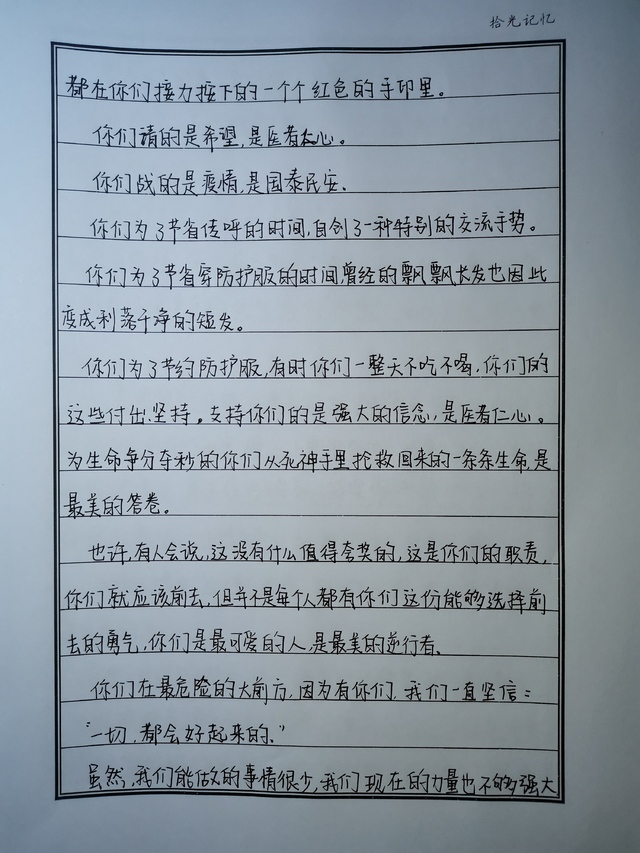 拾光记忆
都在你们接力按下的一个个红色的手印里。
你们请的是希望,是医者仁心。
你们战的是疫情,是国泰民安.
你们为了节省传呼的时间,自创了一种特别的交流手势。
你们为了节省穿防护服的时间曾经的飘飘长发也因此
变成利落干净的短发。
你们为了节约防护服,有时你们一整天不吃不喝.你们的
这些付出.坚持。支持你们的是强大的信念,是医者仁心。
为生命争分夺秒的你们从死神手里抢救回来的一条条生命,是
最美的答卷。
也许,有人会说,这没有什么值得夸奖的,这是你们的职责,
你们就应该前去,但并不是每个人都有你们这份能够选择前
去的勇气,你们是最可爱的人,是最美的逆行者.
你们在最危险的大前方,因为有你们.我们一直坚信:
"一切.都会好起来的."
虽然,我们能做的事情很少,我们现在的力量也不够强大